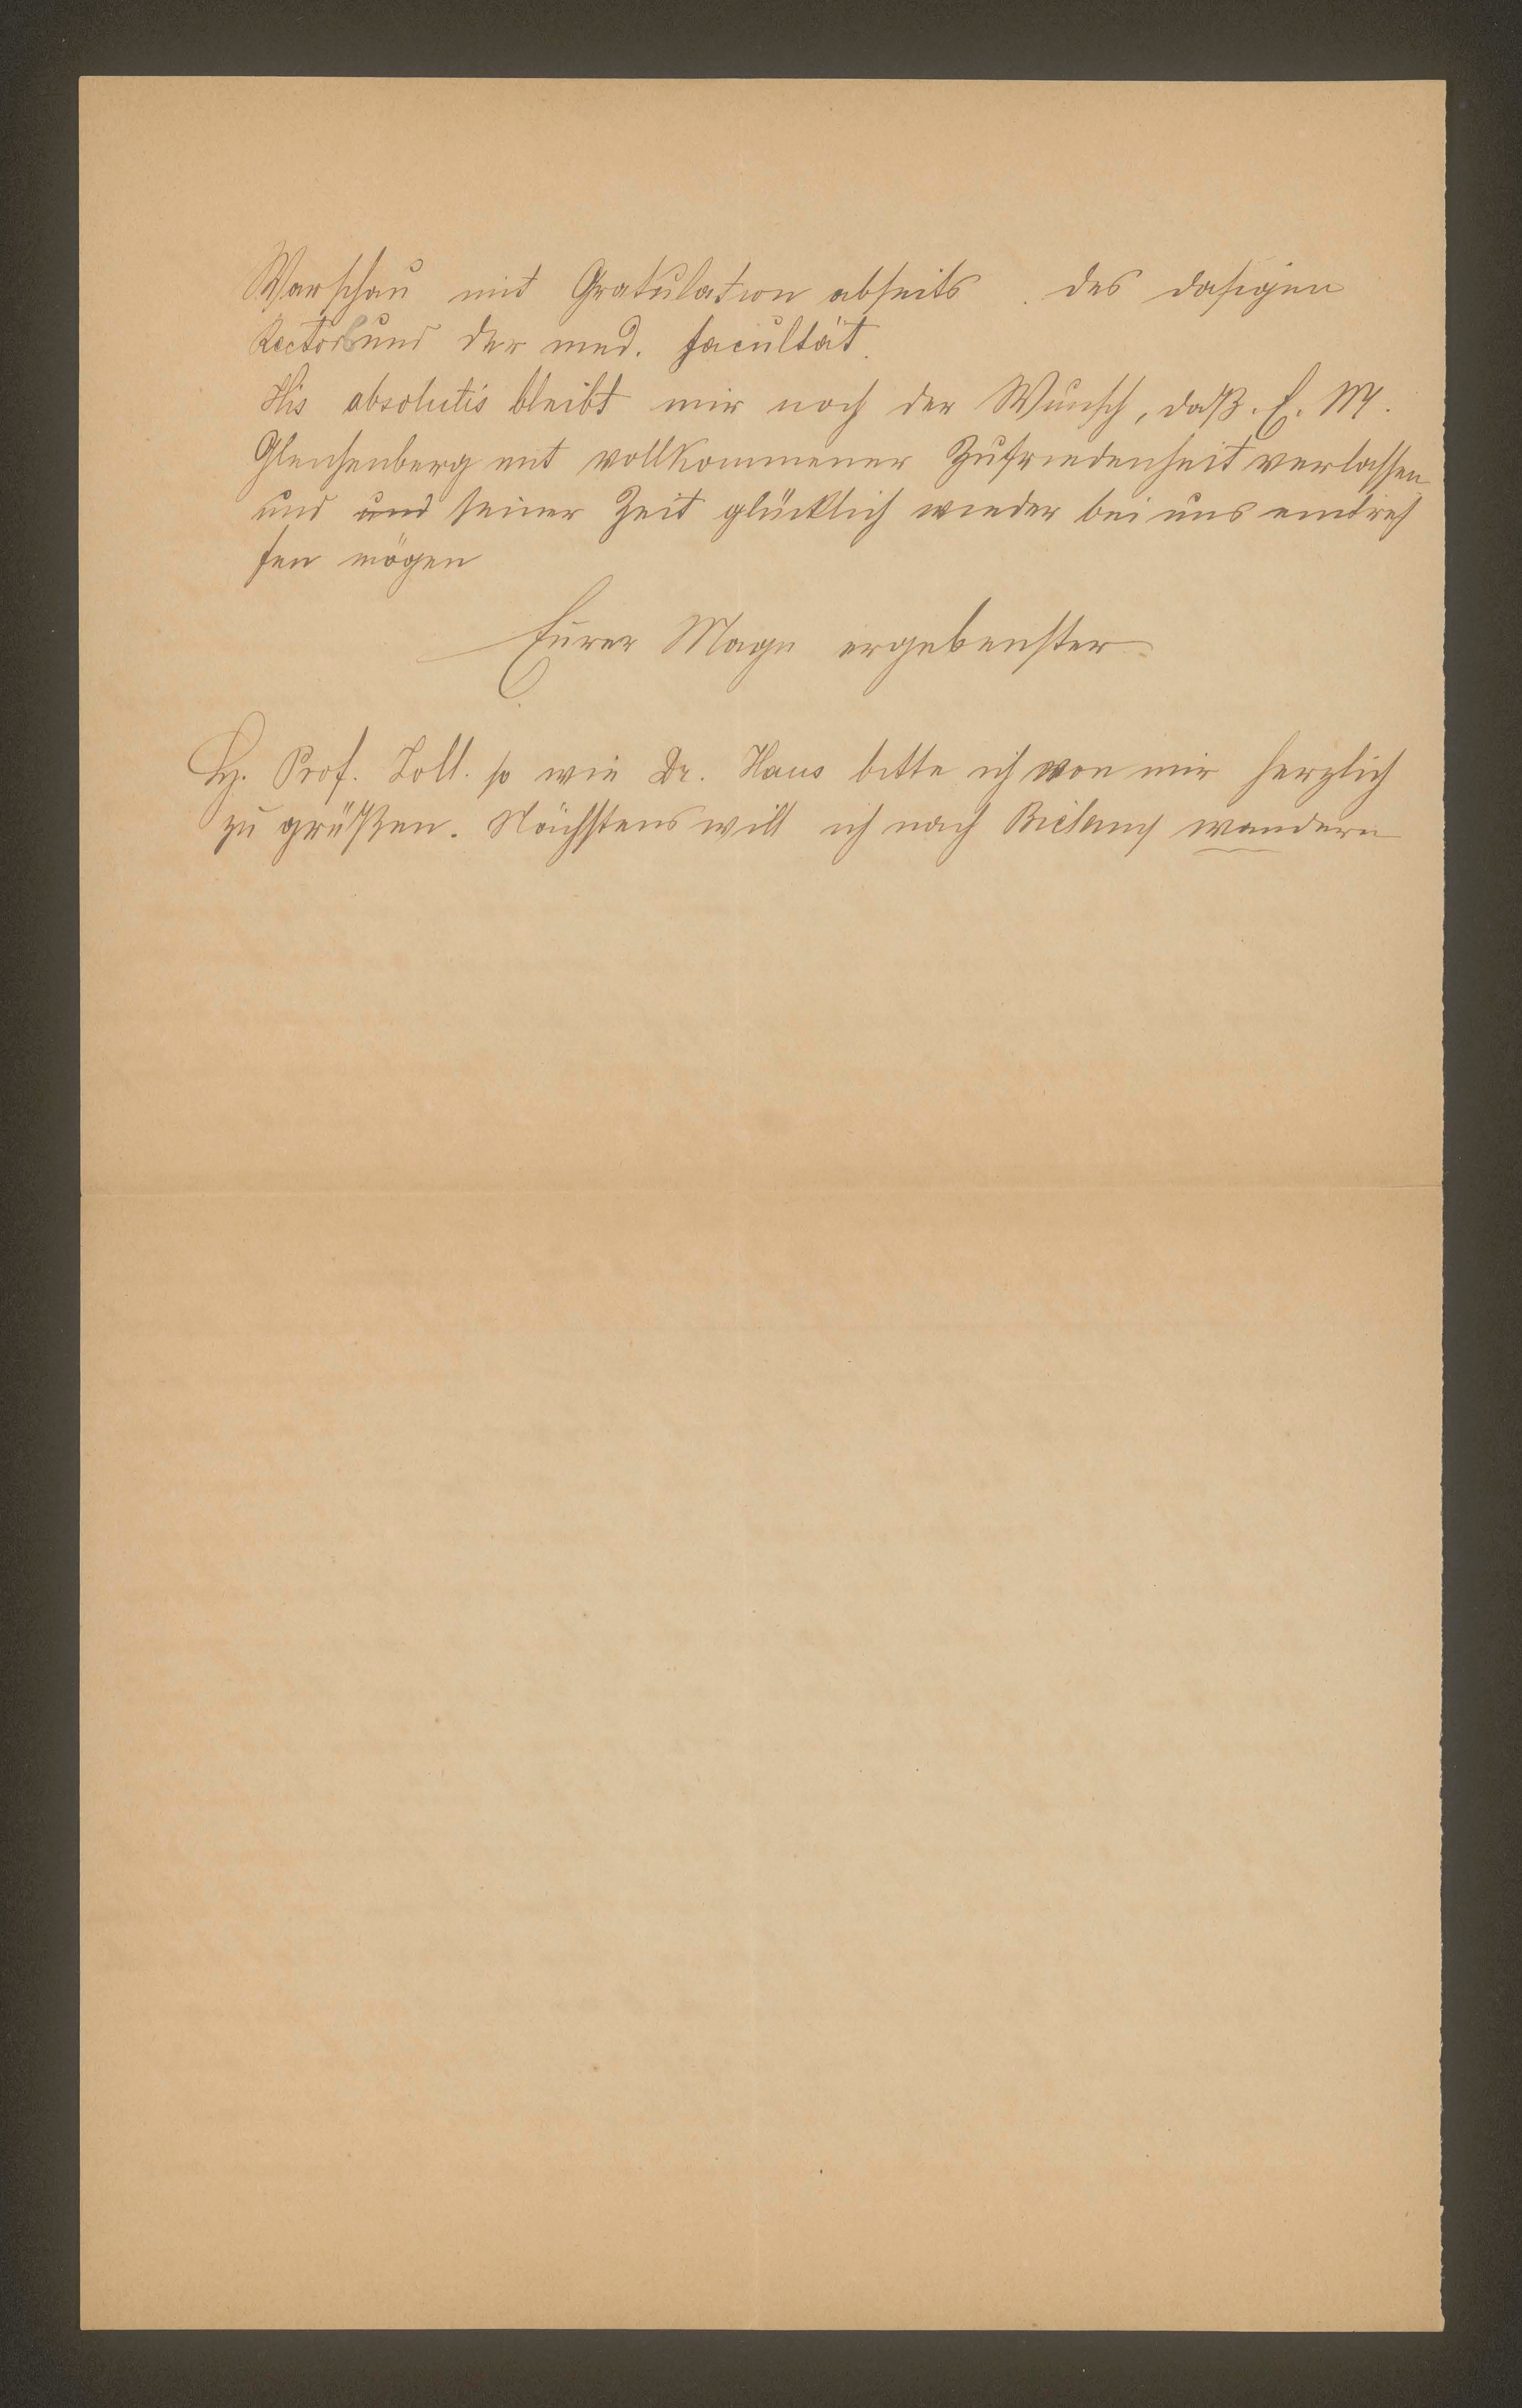 Warschau mit Gratulation abseits des dasigen
Rectors und der med. Facultät.
His absolutis bleibt mir noch der Wunsch, daß E. M.
Gleichenberg mit vollkommener Zufriedenheit verlassen
und und seiner Zeit glücklich wieder bei uns eintref
fen mögen
Eurer Magn ergebenster
H. Prof. Zoll. so wie Dr. Haus bitte ich von mir herzlich
zu grüßen. Nächstens will ich nach Bielany wandern